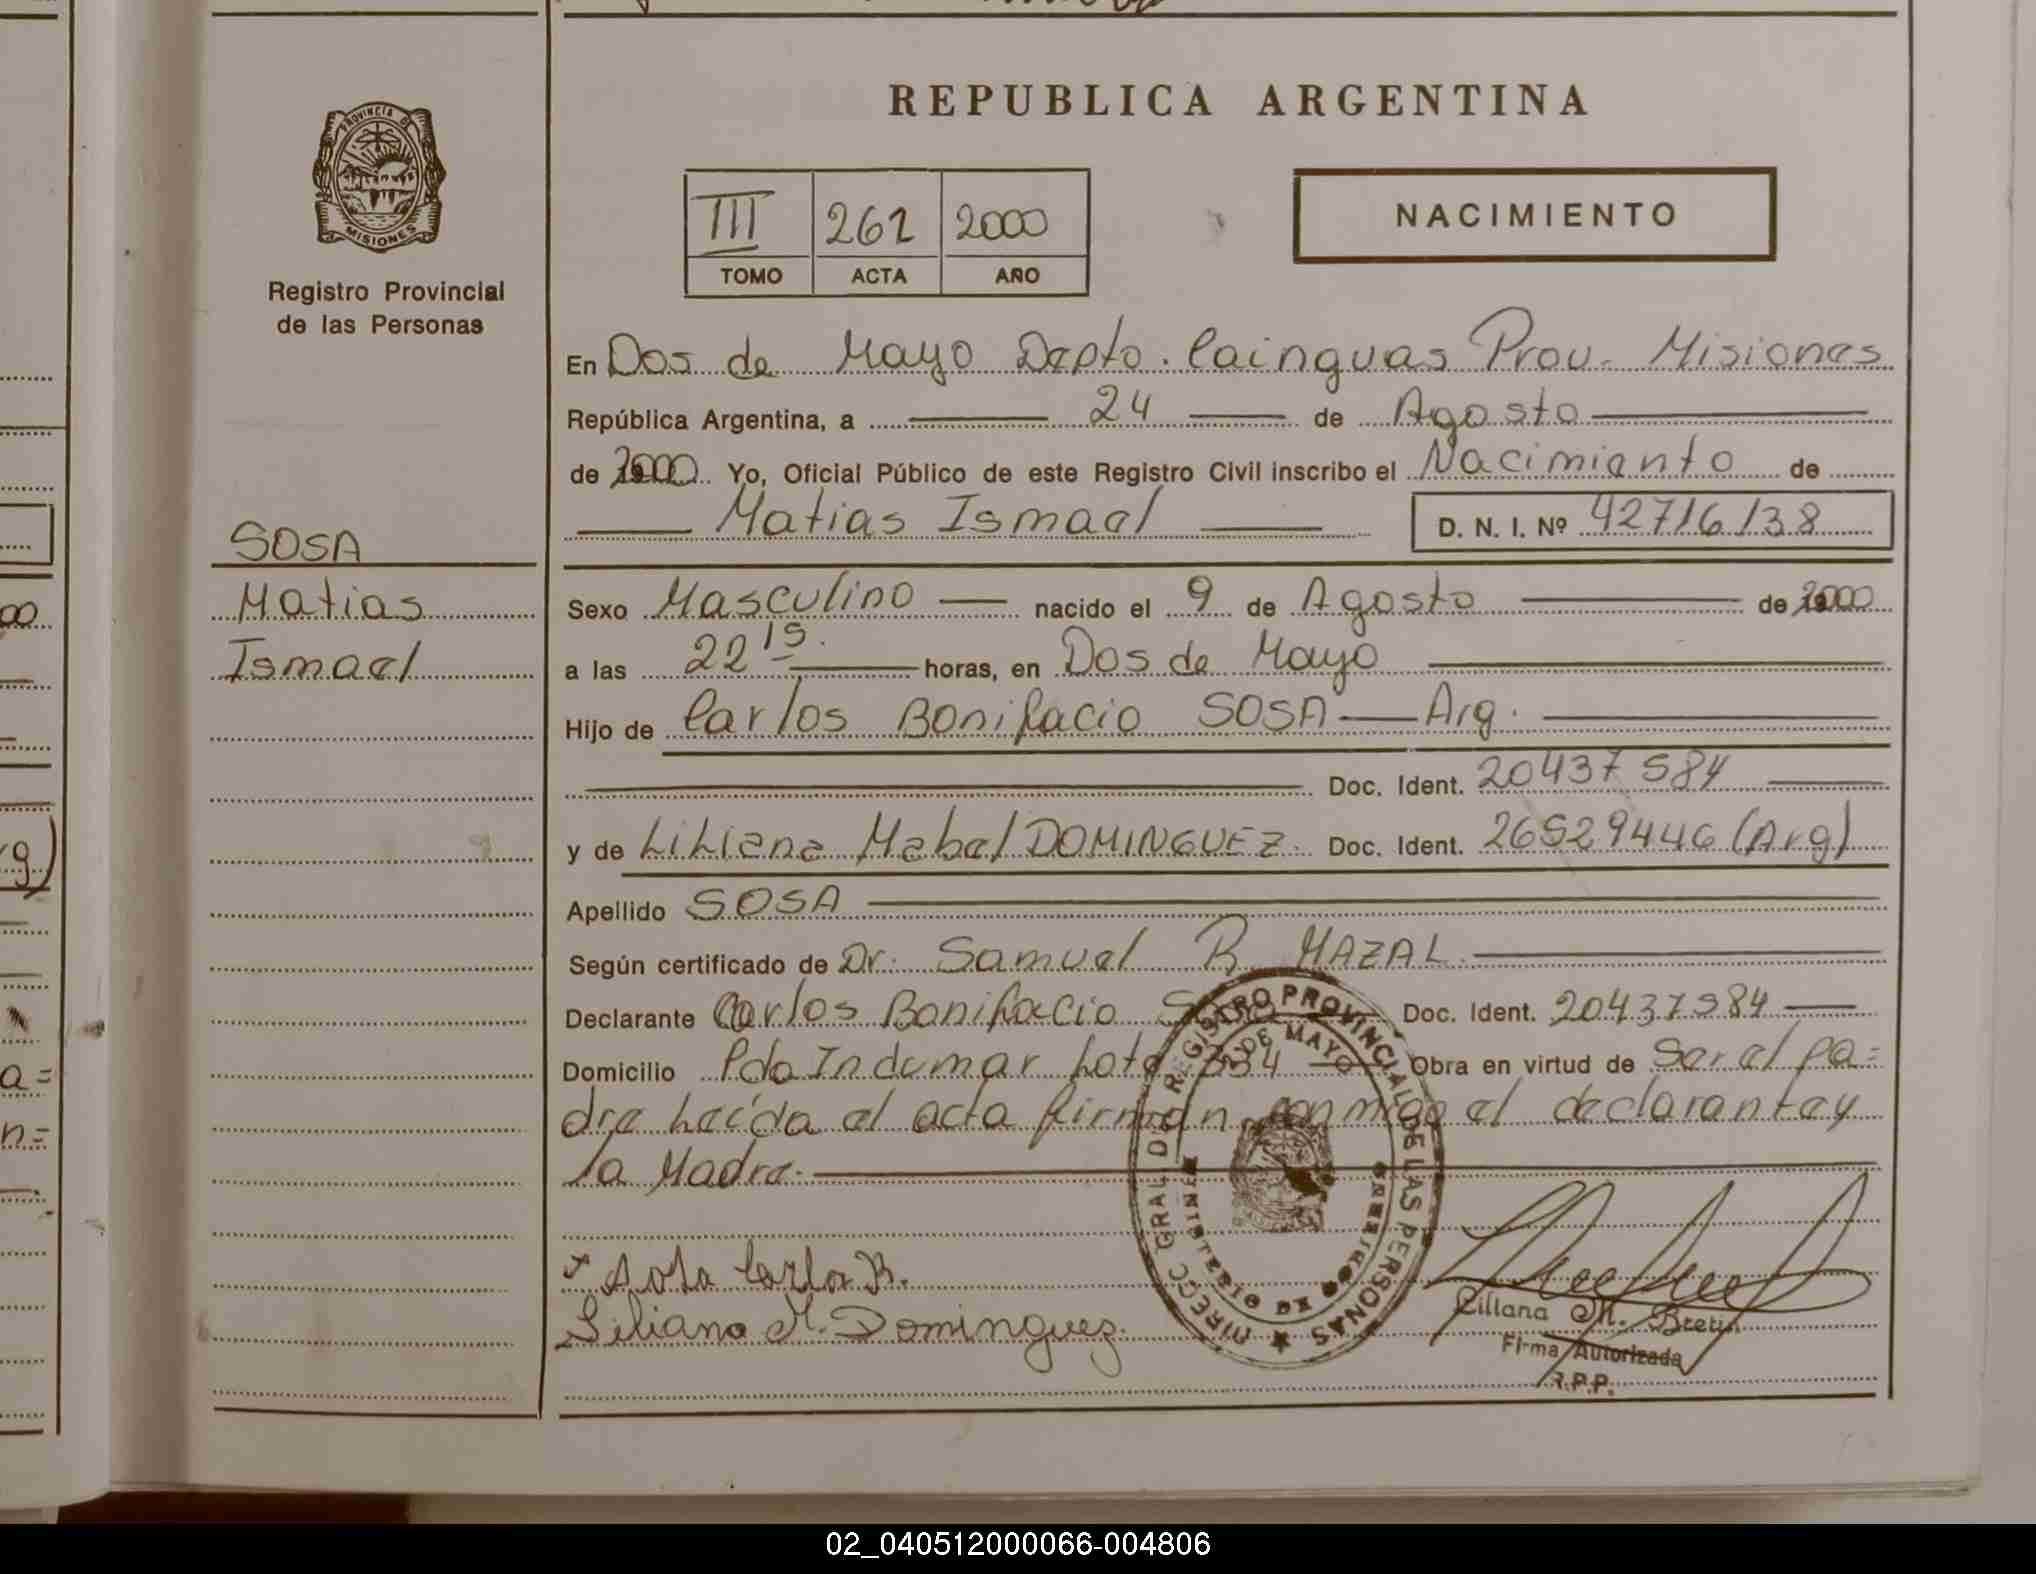 REPUBLICA ARGENTINA
PROVINCIA DE
MISIONES
Registro Provincial
de las Personas
III 261 2000
TOMO ACTA AÑO
NACIMIENTO
En Dos de Mayo Depto. Cainguas Prov. Misiones
República Argentina, a 24 de Agosto
de 2000 Yo, Oficial Público de este Registro Civil inscribo el Nacimiento de
Matias Ismael D. N. I. Nº 42716138
SOSA
Matias
Ismael
Sexo Masculino nacido el 9 de Agosto de 2000
a las 22 15. horas, en Dos de Mayo
Hijo de Carlos Bonifacio SOSA Arg.
Doc. Ident. 20437584
y de Liliana Mabel DOMINGUEZ. Doc. Ident. 26529446 (Arg)
Apellido SOSA
Según certificado de Dr. Samuel R MAZAL.
Declarante Carlos Bonifacio Doc. Ident. 20437584
Domicilio Pdo Indumar Lote 334 Obra en virtud de Ser el pa=
dre Leída el acta firman conmigo el declarante y
la Madre.
DIRECC GRAL DEL REGISTRO PROVINCIAL DE LAS PERSONAS
DE MAYO
MINISTERIO DE GOBIERNO
Sosa Carlos B.
Liliana M. Dominguez.
Liliana M.
Firma Autorizada
R.P.P.
rg)
a=
n=
02_040512000066-004806